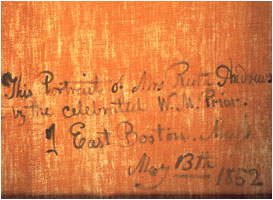 This Portrait of Mrs Ruth Andrews
by the celebrated W. M. Prior.
East Boston. Mass
May 13th 1852